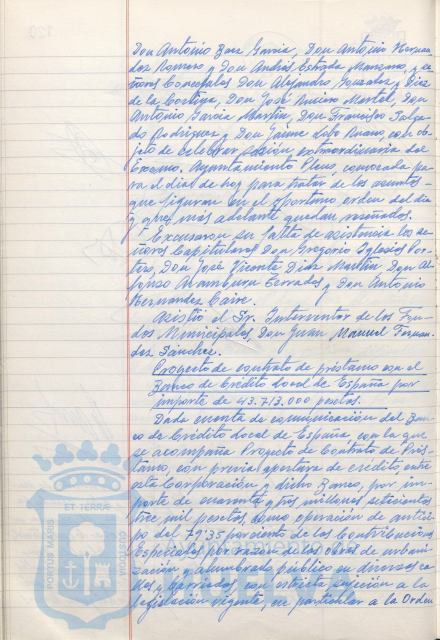 Don Antonio Baez Garcia, Don Antonio Hernan
dez Romero y Don Andrés Estrada Manzano, y se
ñores Concejales Don Alejandro Gonzalez y Diez
de la Cortina, Don José Muriero Martel, Don
Antonio Garcia Martin, Don Francisco Salga
do Rodriguez y Don Jaime Lobo Asuero, con ob
jeto de celebrar sesión extraordinaria del
Excmo. Ayuntamiento Pleno, convocada pa
ra el dia de hoy para tratar de los asuntos
que figuran en el oportuno orden del dia
y que más adelante quedan reseñados.
Excusaron su falta de asistencia los se
ñores Capitulares Don Gregorio Iglesias Por
tero, Don José Vicente Diaz Martin, Don Al
fonso Aramburu Terrades y Don Antonio
Hernandez Caire.
Asistió el Sr. Interventor de los Fon
dos Municipales, Don Juan Manuel Fernan
dez Sánchez.
Proyecto de contrato de préstamo con el
Banco de Crédito Local de España por
importe de 43.713.000 pesetas.
Dada cuenta de comunicación del Ban
co de Crédito Local de España, con la que
se acompaña Proyecto de Contrato de Prés
tamo, con previa apertura de credito, entre
esta Corporación y dicho Banco, por im
porte de cuarenta y tres millones setecientos
trece mil pesetas, como operación de antici
po del 79'35 por ciento de las Contribuciones
Especiales por razón de las obras de urbani
zación y alumbrado público en diversas ca
lles y barriadas, con estricta sujeción a la
legislación vigente, en particular a la Orden
PORTUS MARIS
ET TERRÆ
CUSTODIA